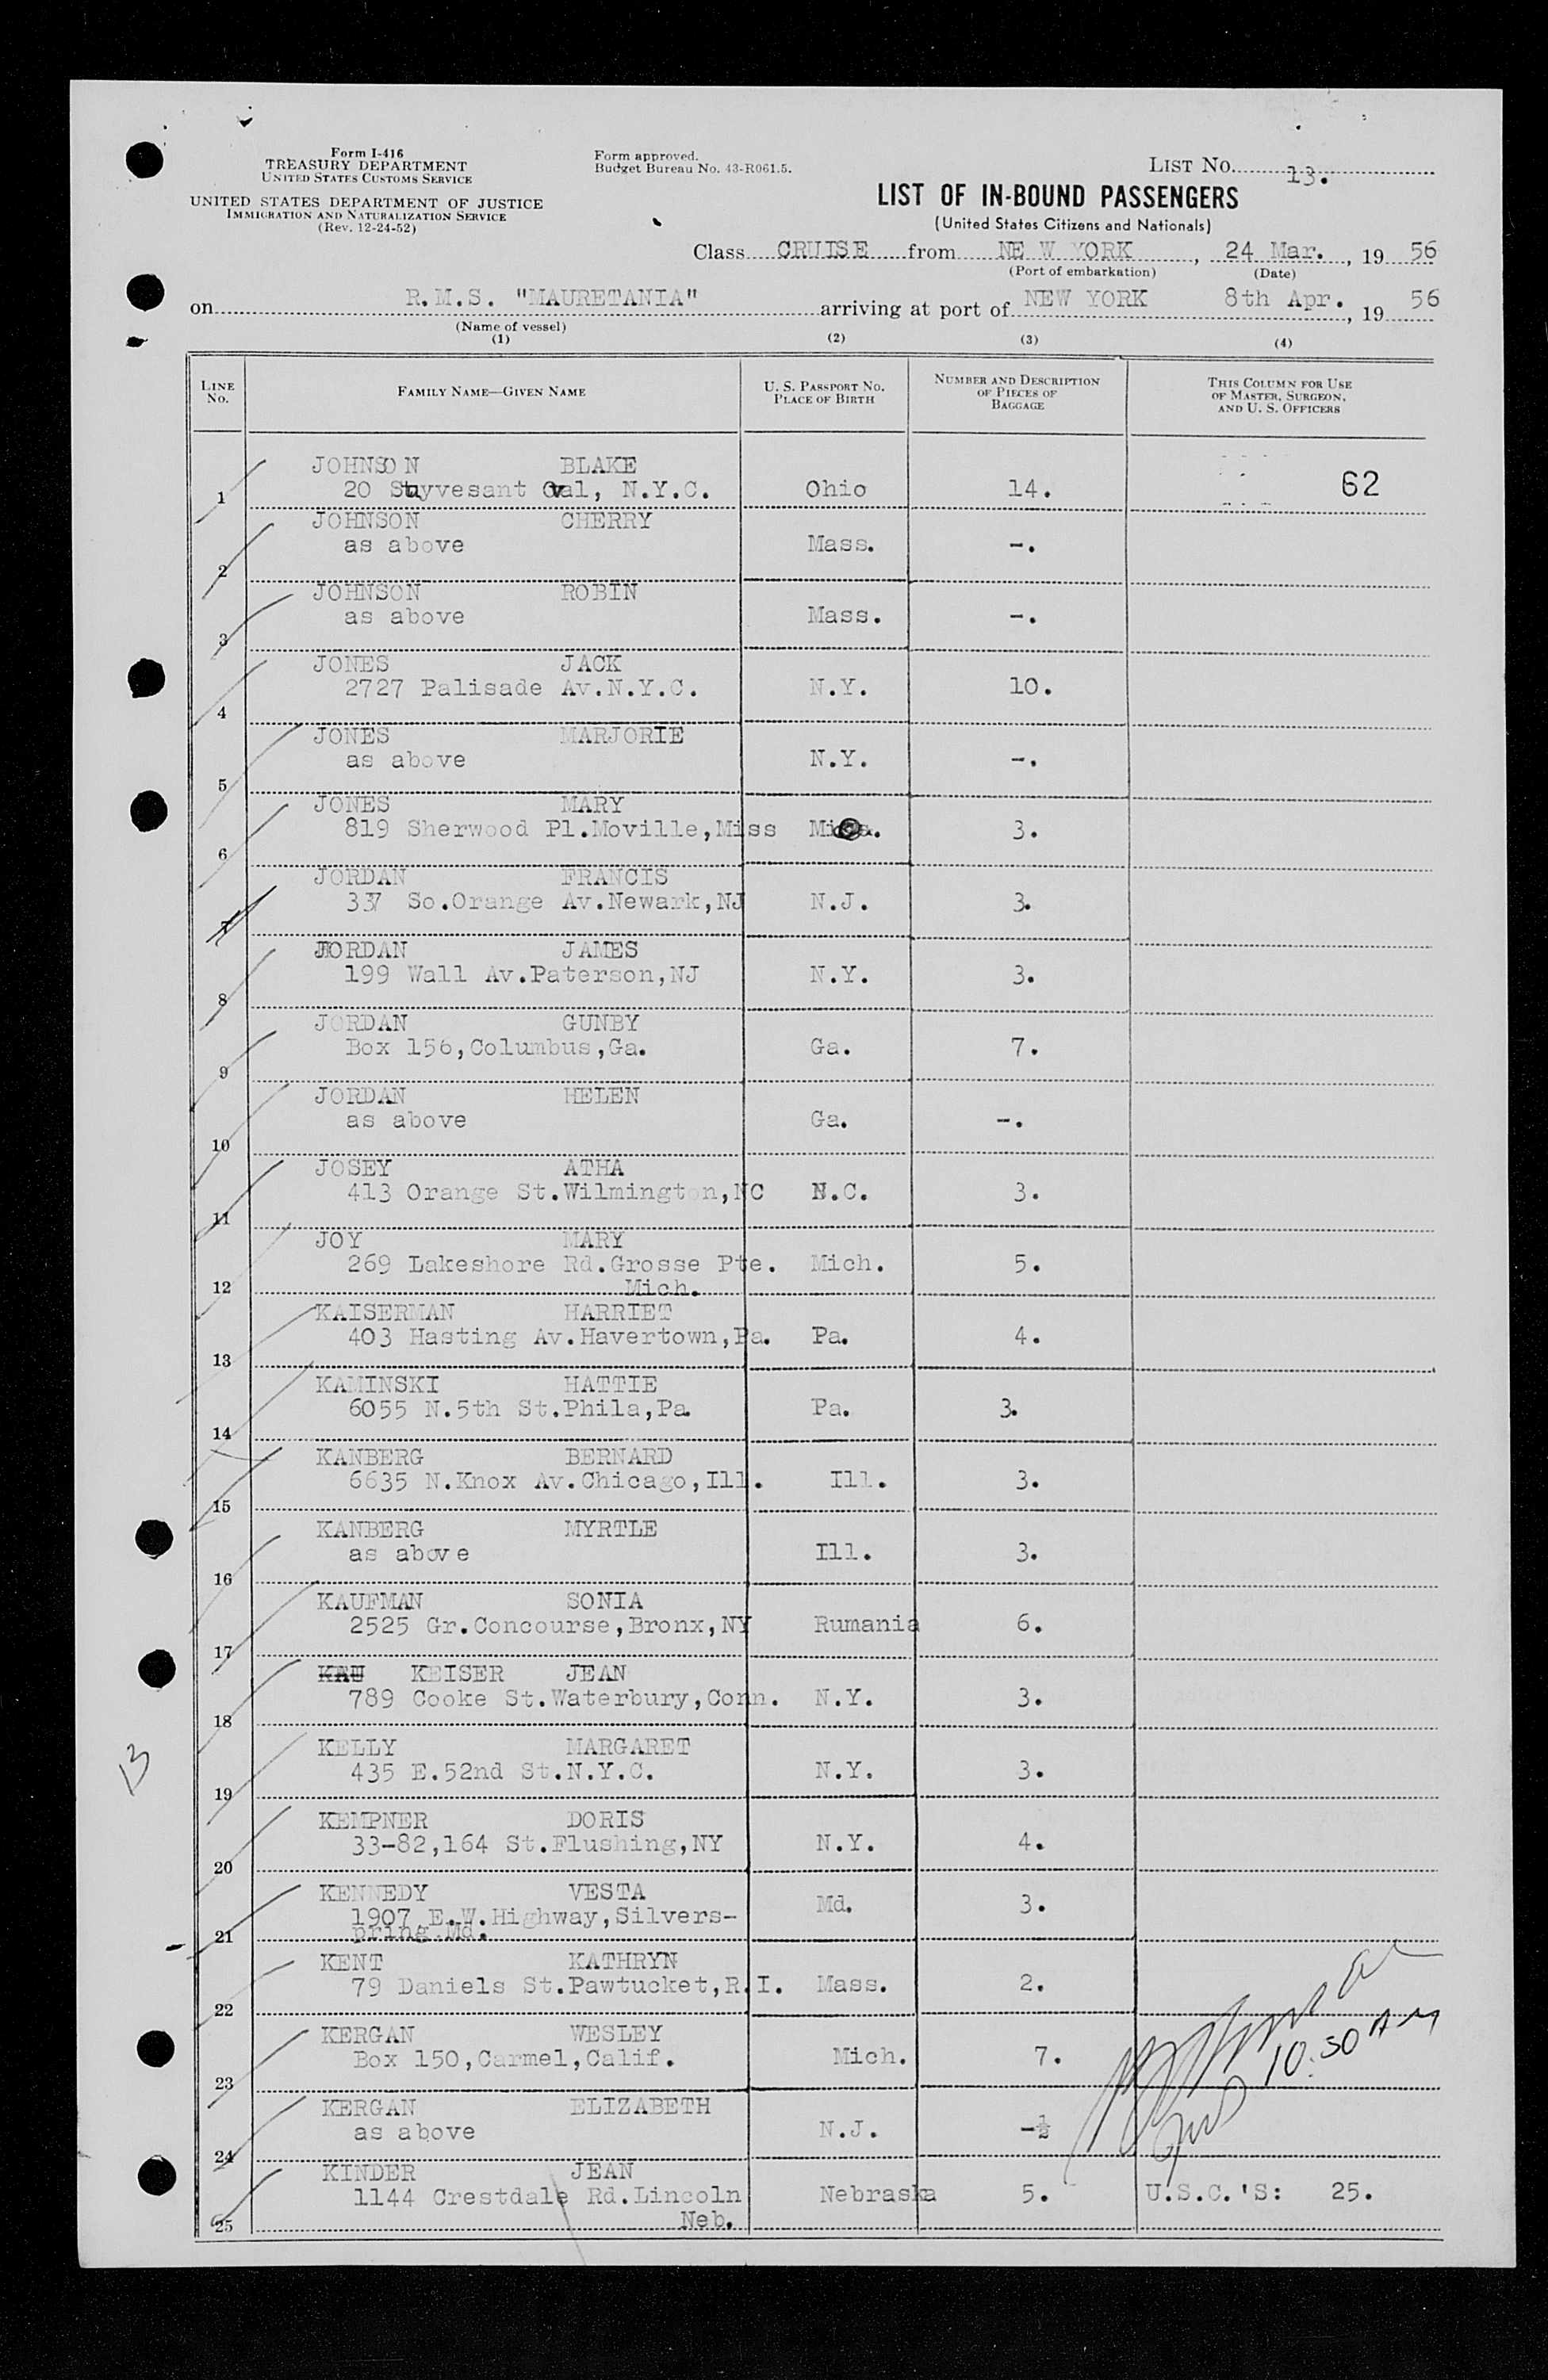 Form I-416
TREASURY DEPARTMENT
UNITED STATES CUSTOMS SERVICE
UNITED STATES DEPARTMENT OF JUSTICE
IMMIGRATION AND NATURALIZATION SERVICE
(Rev. 12-24-52)
Form approved.
Budget Bureau No. 43-R061.5.
LIST No. 13.
LIST OF IN-BOUND PASSENGERS
(United States Citizens and Nationals)
Class CRUISE from NEW YORK, 24 Mar., 19 56
(Port of embarkation) (Date)
on R.M.S. "MAURETANIA" arriving at port of NEW YORK 8th Apr., 19 56
(Name of vessel)
(1) (2) (3) (4)
LINE No. FAMILY NAME—GIVEN NAME U. S. PASSPORT No. PLACE OF BIRTH NUMBER AND DESCRIPTION OF PIECES OF BAGGAGE THIS COLUMN FOR USE OF MASTER, SURGEON, AND U. S. OFFICERS
JOHNSON BLAKE
1 20 Stuyvesant Oval, N.Y.C. Ohio 14. 62
JOHNSON CHERRY
2 as above Mass. -.
JOHNSON ROBIN
3 as above Mass. -.
JONES JACK
4 2727 Palisade Av.N.Y.C. N.Y. 10.
JONES MARJORIE
5 as above N.Y. -.
JONES MARY
6 819 Sherwood Pl.Moville,Miss 3.
JORDAN FRANCIS
7 337 So.Orange Av.Newark,NJ N.J. 3.
JORDAN JAMES
8 199 Wall Av.Paterson,NJ N.Y. 3.
JORDAN GUNBY
9 Box 156,Columbus,Ga. Ga. 7.
JORDAN HELEN
10 as above Ga. -.
JOSEY ATHA
11 413 Orange St.Wilmington,NC N.C. 3.
JOY MARY
269 Lakeshore Rd.Grosse Pte. Mich. 5.
12 Mich.
KAISERMAN HARRIET
13 403 Hasting Av.Havertown,Pa. Pa. 4.
KAMINSKI HATTIE
14 6055 N.5th St.Phila,Pa Pa. 3.
KANBERG BERNARD
15 6635 N.Knox Av.Chicago,Ill. Ill. 3.
KANBERG MYRTLE
16 as above Ill. 3.
KAUFMAN SONIA
17 2525 Gr.Concourse,Bronx,NY Rumania 6.
KAU KEISER JEAN
18 789 Cooke St.Waterbury,Conn. N.Y. 3.
KELLY MARGARET
19 435 E.52nd St.N.Y.C. N.Y. 3.
13
KEMPNER DORIS
20 33-82,164 St.Flushing,NY N.Y. 4.
KENNEDY VESTA
1907 E.W.Highway,Silvers- Md. 3.
21 pring Md.
KENT KATHRYN
22 79 Daniels St.Pawtucket,R.I. Mass. 2.
KERGAN WESLEY
23 Box 150,Carmel,Calif. Mich. 7. 10:50 AM
KERGAN ELIZABETH
24 as above N.J. -½
KINDER JEAN
1144 Crestdale Rd.Lincoln Nebraska 5. U.S.C.'S: 25.
25 Neb.